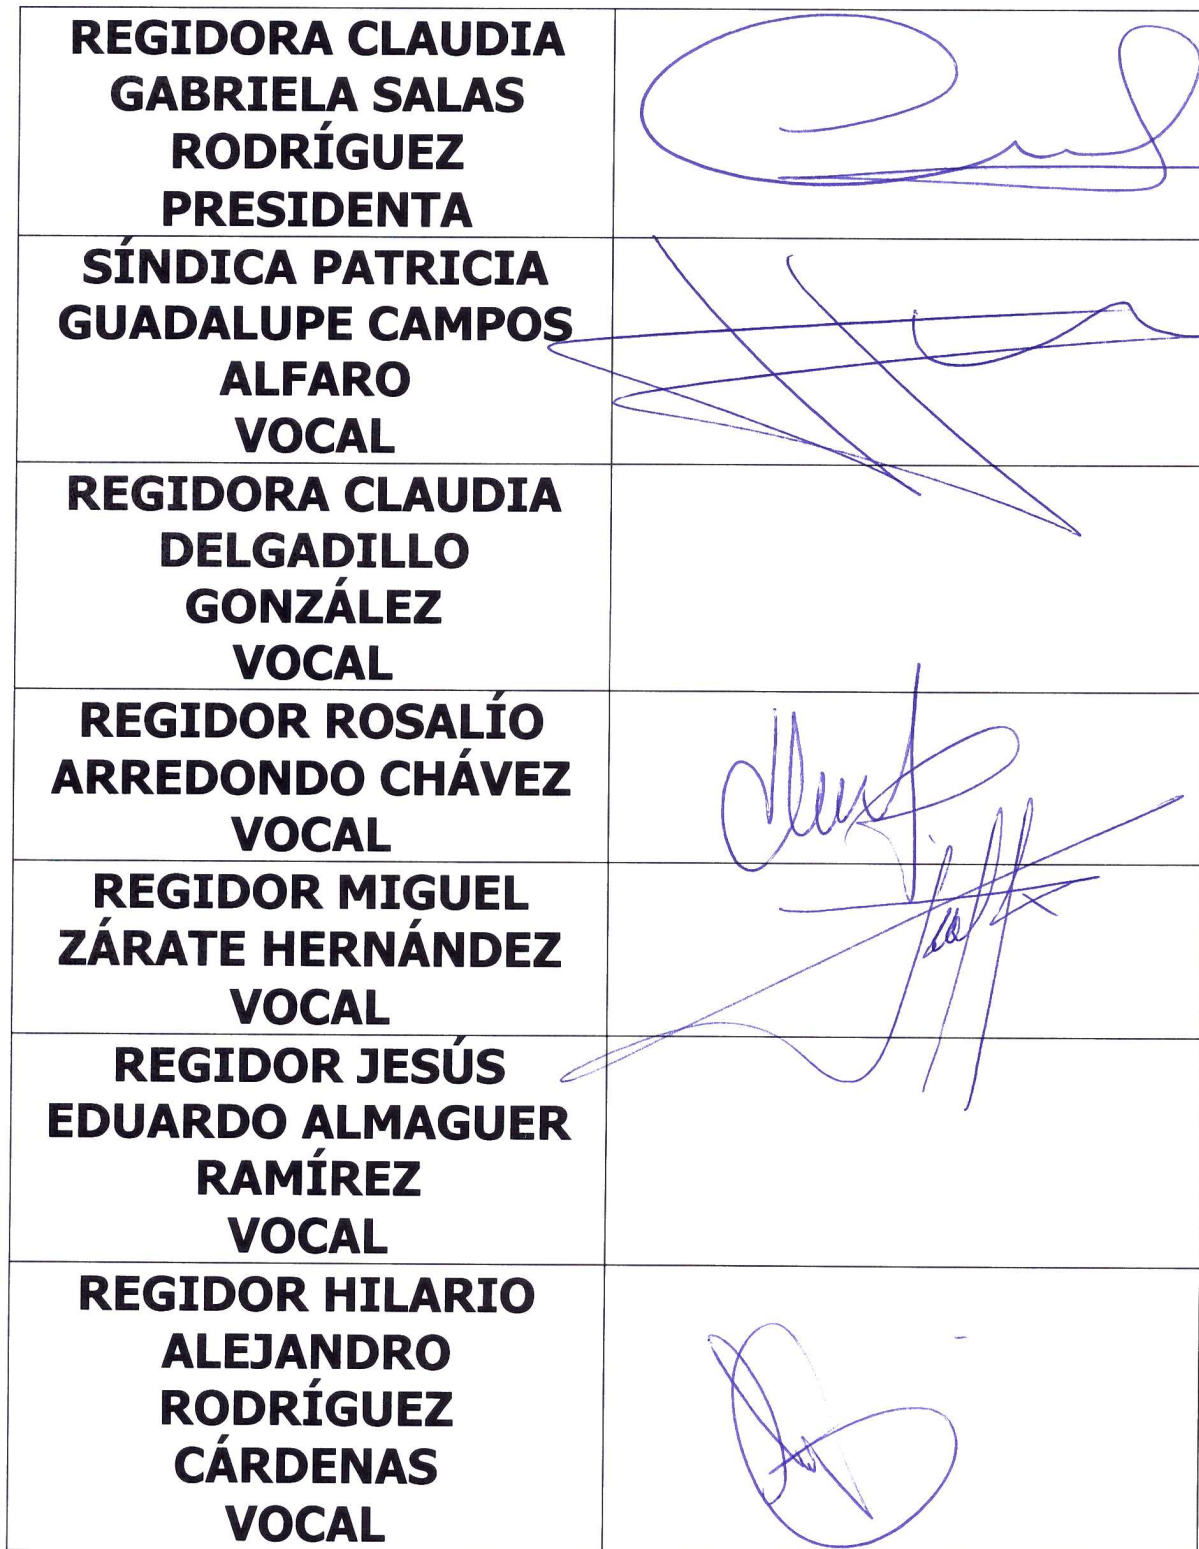 REGIDORA CLAUDIA
GABRIELA SALAS
RODRÍGUEZ
PRESIDENTA
SÍNDICA PATRICIA
GUADALUPE CAMPOS
ALFARO
VOCAL
REGIDORA CLAUDIA
DELGADILLO
GONZÁLEZ
VOCAL
REGIDOR ROSALÍO
ARREDONDO CHÁVEZ
VOCAL
REGIDOR MIGUEL
ZÁRATE HERNÁNDEZ
VOCAL
REGIDOR JESÚS
EDUARDO ALMAGUER
RAMÍREZ
VOCAL
REGIDOR HILARIO
ALEJANDRO
RODRÍGUEZ
CÁRDENAS
VOCAL